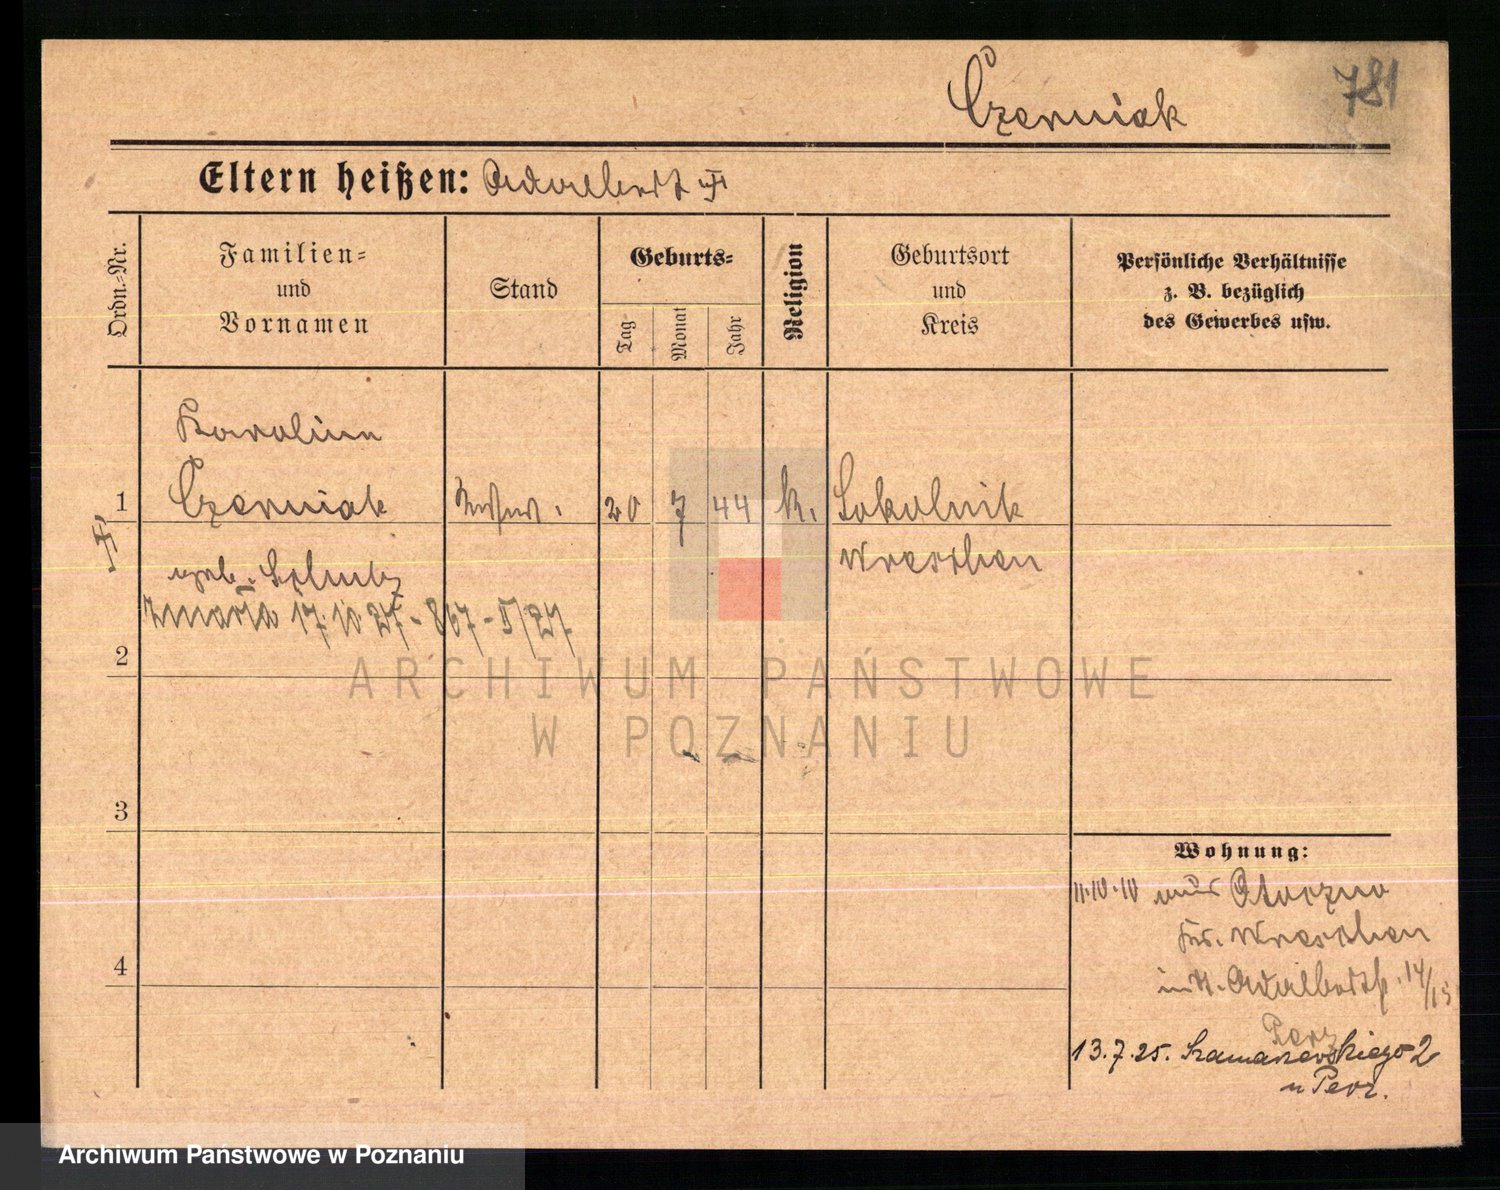 781
Czerniak
Eltern heißen: Adalbert
Ordn.-Nr.
Familien-
und
Vornamen
Stand
Geburts-
Tag
Monat
Jahr
Religion
Geburtsort
und
Kreis
Persönliche Verhältnisse
z. B. bezüglich
des Gewerbes usw.
Karoline
1 Czerniak 20 7 44 k. Sokolnik
geb. Wreschen
zmarła 17.10.27 - 867 - 5/27
2
ARCHIWUM PAŃSTWOWE
W POZNANIU
3
Wohnung:
11.10.10 aus Otoczno
Wreschen
4
14/15
13.7.25. 2
Archiwum Państwowe w Poznaniu